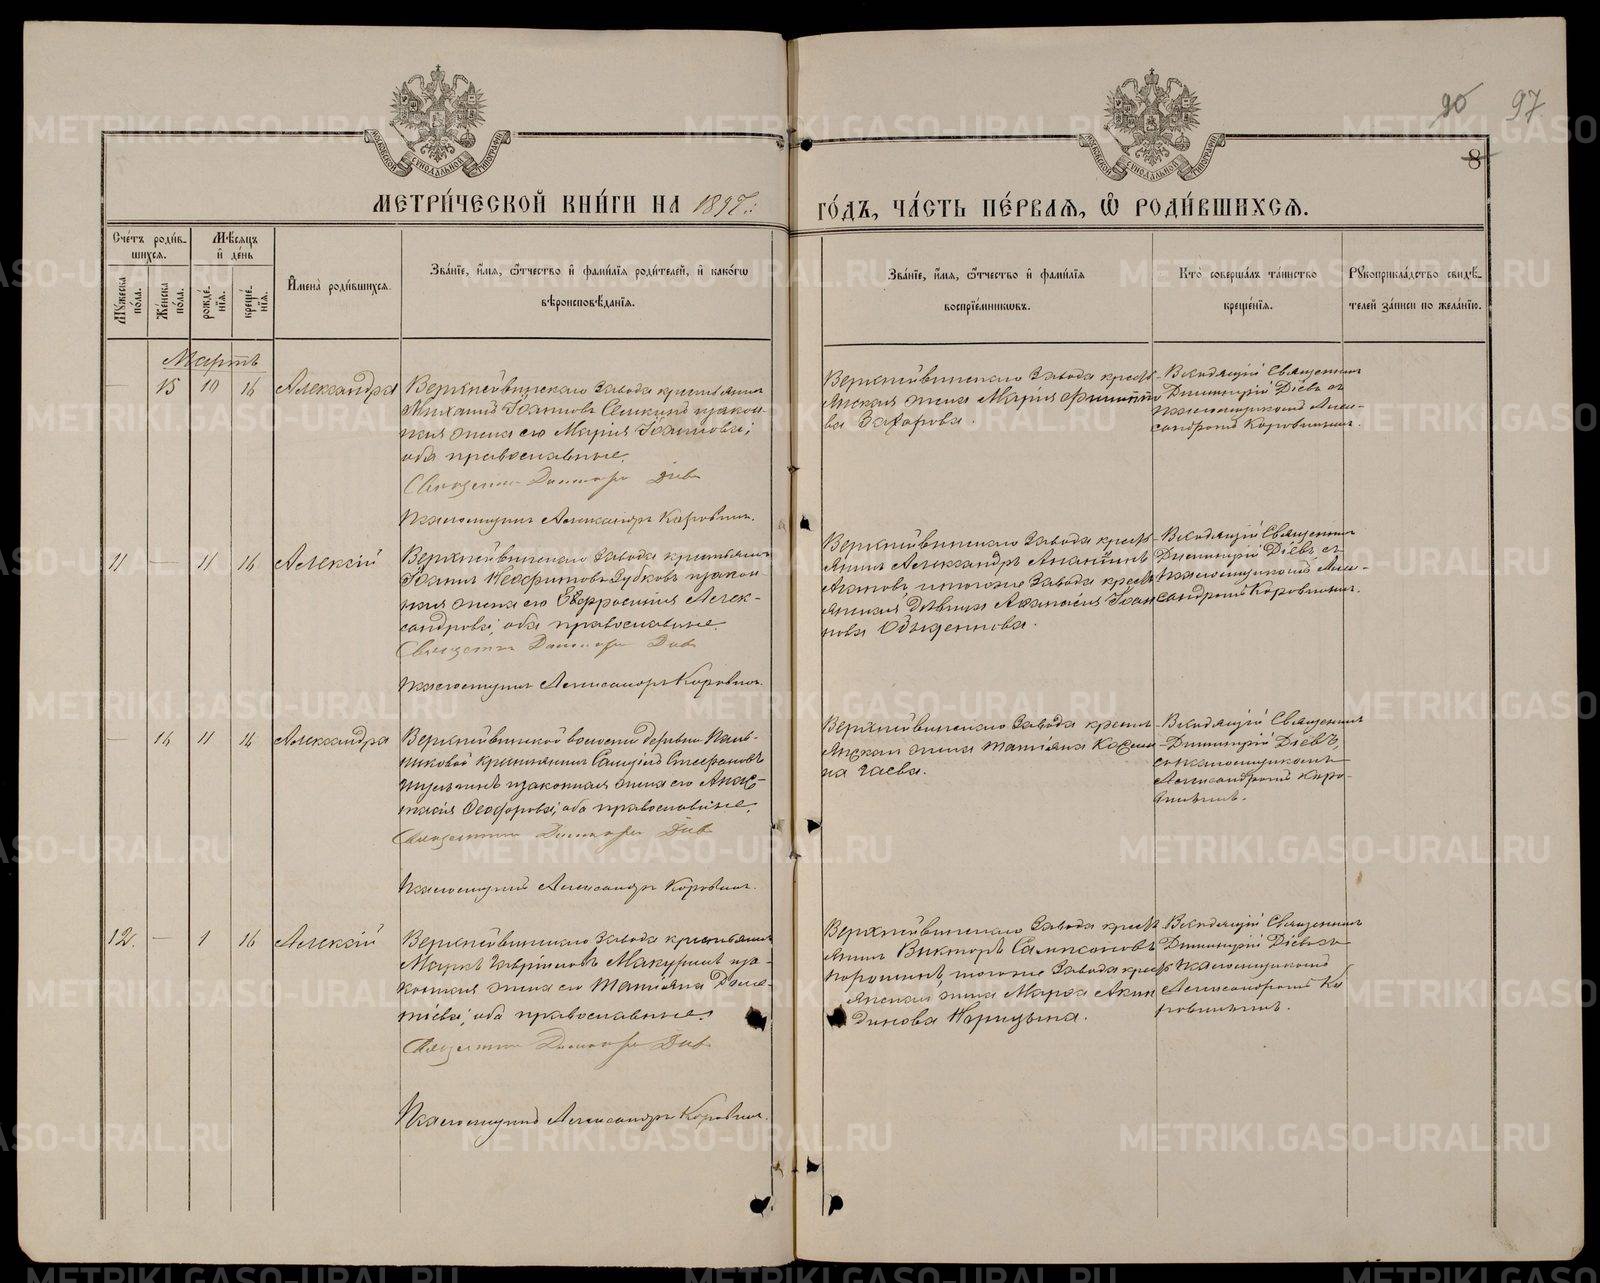 90 97
8
МЕТРИ́ЧЕСКОЙ КНИ́ГИ НА 1897: ГО́ДЪ, ЧА́СТЬ ПЕ́РВАЯ, Ѡ РОДИ́ВШИХСЯ.
Сче́тъ роди́в-
шихся.
Му́жеска по́ла.
Же́нска по́ла.
Мѣ́сяцъ
и де́нь
рожде́-
нія.
креще́-
нія.
Имена̀ роди́вшихся.
Зва́ніе, и́мя, ѻ́тчество и фами́лія роди́телей, и како́гѡ
вѣроисповѣ́данія.
Зва́ніе, и́мя, ѻ́тчество и фами́лія
воспріе́мниковъ.
Кто̀ соверша́лъ та́инство
креще́нія.
Рукоприкла́дство свидѣ́-
телей за́писи по жела́нію.
Мартъ
— 15 10 16 Александра
Верхнейвинскаго завода крестьянинъ
Михаилъ Іоанновъ и закон-
ная жена его Марія Іоаннова;
оба православные.
Священникъ Димитрій Діевъ
Псаломщикъ Александръ Коровинъ.
Верхнейвинскаго завода кресть-
янская жена Марія
ва Захарова.
Входящій Священникъ
Димитрій Діевъ съ
псаломщикомъ Алек-
сандромъ Коровинымъ.
11 — 11 16 Алексій
Верхнейвинскаго завода крестьянинъ
Іоаннъ Дубковъ и закон-
ная жена его Евфросинія Алек-
сандрова; оба православные.
Священникъ Димитрій Діевъ
Псаломщикъ Александръ Коровинъ.
Верхнейвинскаго завода кресть-
янинъ Александръ Ананьинъ
Агаповъ и тогоже завода кресть-
янская дѣвица Аѳанасія Іоан-
нова
Входящій Священникъ
Димитрій Діевъ съ
псаломщикомъ Алек-
сандромъ Коровинымъ.
— 16 11 16 Александра
Верхнейвинской волости деревни Паль-
никовой крестьянинъ Стефановъ
и законная жена его Анас-
тасія Ѳеодорова; оба православные.
Священникъ Димитрій Діевъ
Псаломщикъ Александръ Коровинъ.
Верхнейвинскаго завода кресть-
янская жена Татіана
на Гаева.
Входящій Священникъ
Димитрій Діевъ,
съ псаломщикомъ
Александромъ Коро-
винымъ.
12. — 1 16 Алексій
Верхнейвинскаго завода крестьянинъ
Маркъ Гавріиловъ и за-
конная жена его Татіана Доме-
тіева; оба православные.
Священникъ Димитрій Діевъ
Псаломщикъ Александръ Коровинъ.
Верхнейвинскаго завода кресть-
янинъ Викторъ Сампсоновъ
Порошинъ, тогоже завода кресть-
янская жена Марѳа Акин-
динова Норицына.
Входящій Священникъ
Димитрій Діевъ съ
псаломщикомъ
Александромъ Ко-
ровинымъ.
METRIKI.GASO-URAL.RU